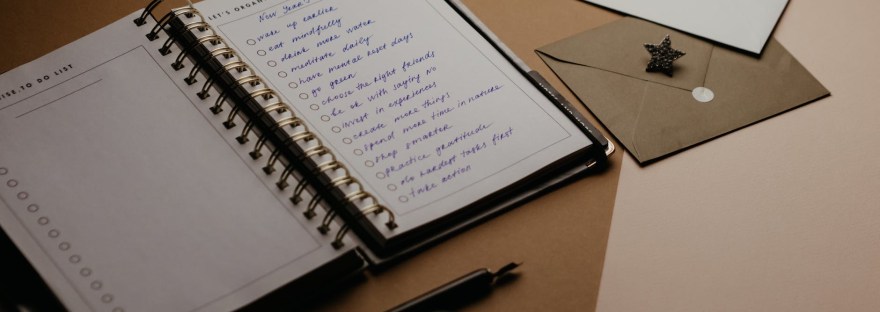 ISE TO DO LIST
LET'S ORGAN
New Year's
wake up earlier
eat mindfully
drink more water
meditate daily
have mental reset days
go green
choose the right friends
be ok with saying no
invest in experiences
create more things
spend more time in nature
shop smarter
practice gratitude
do hardest tasks first
take action